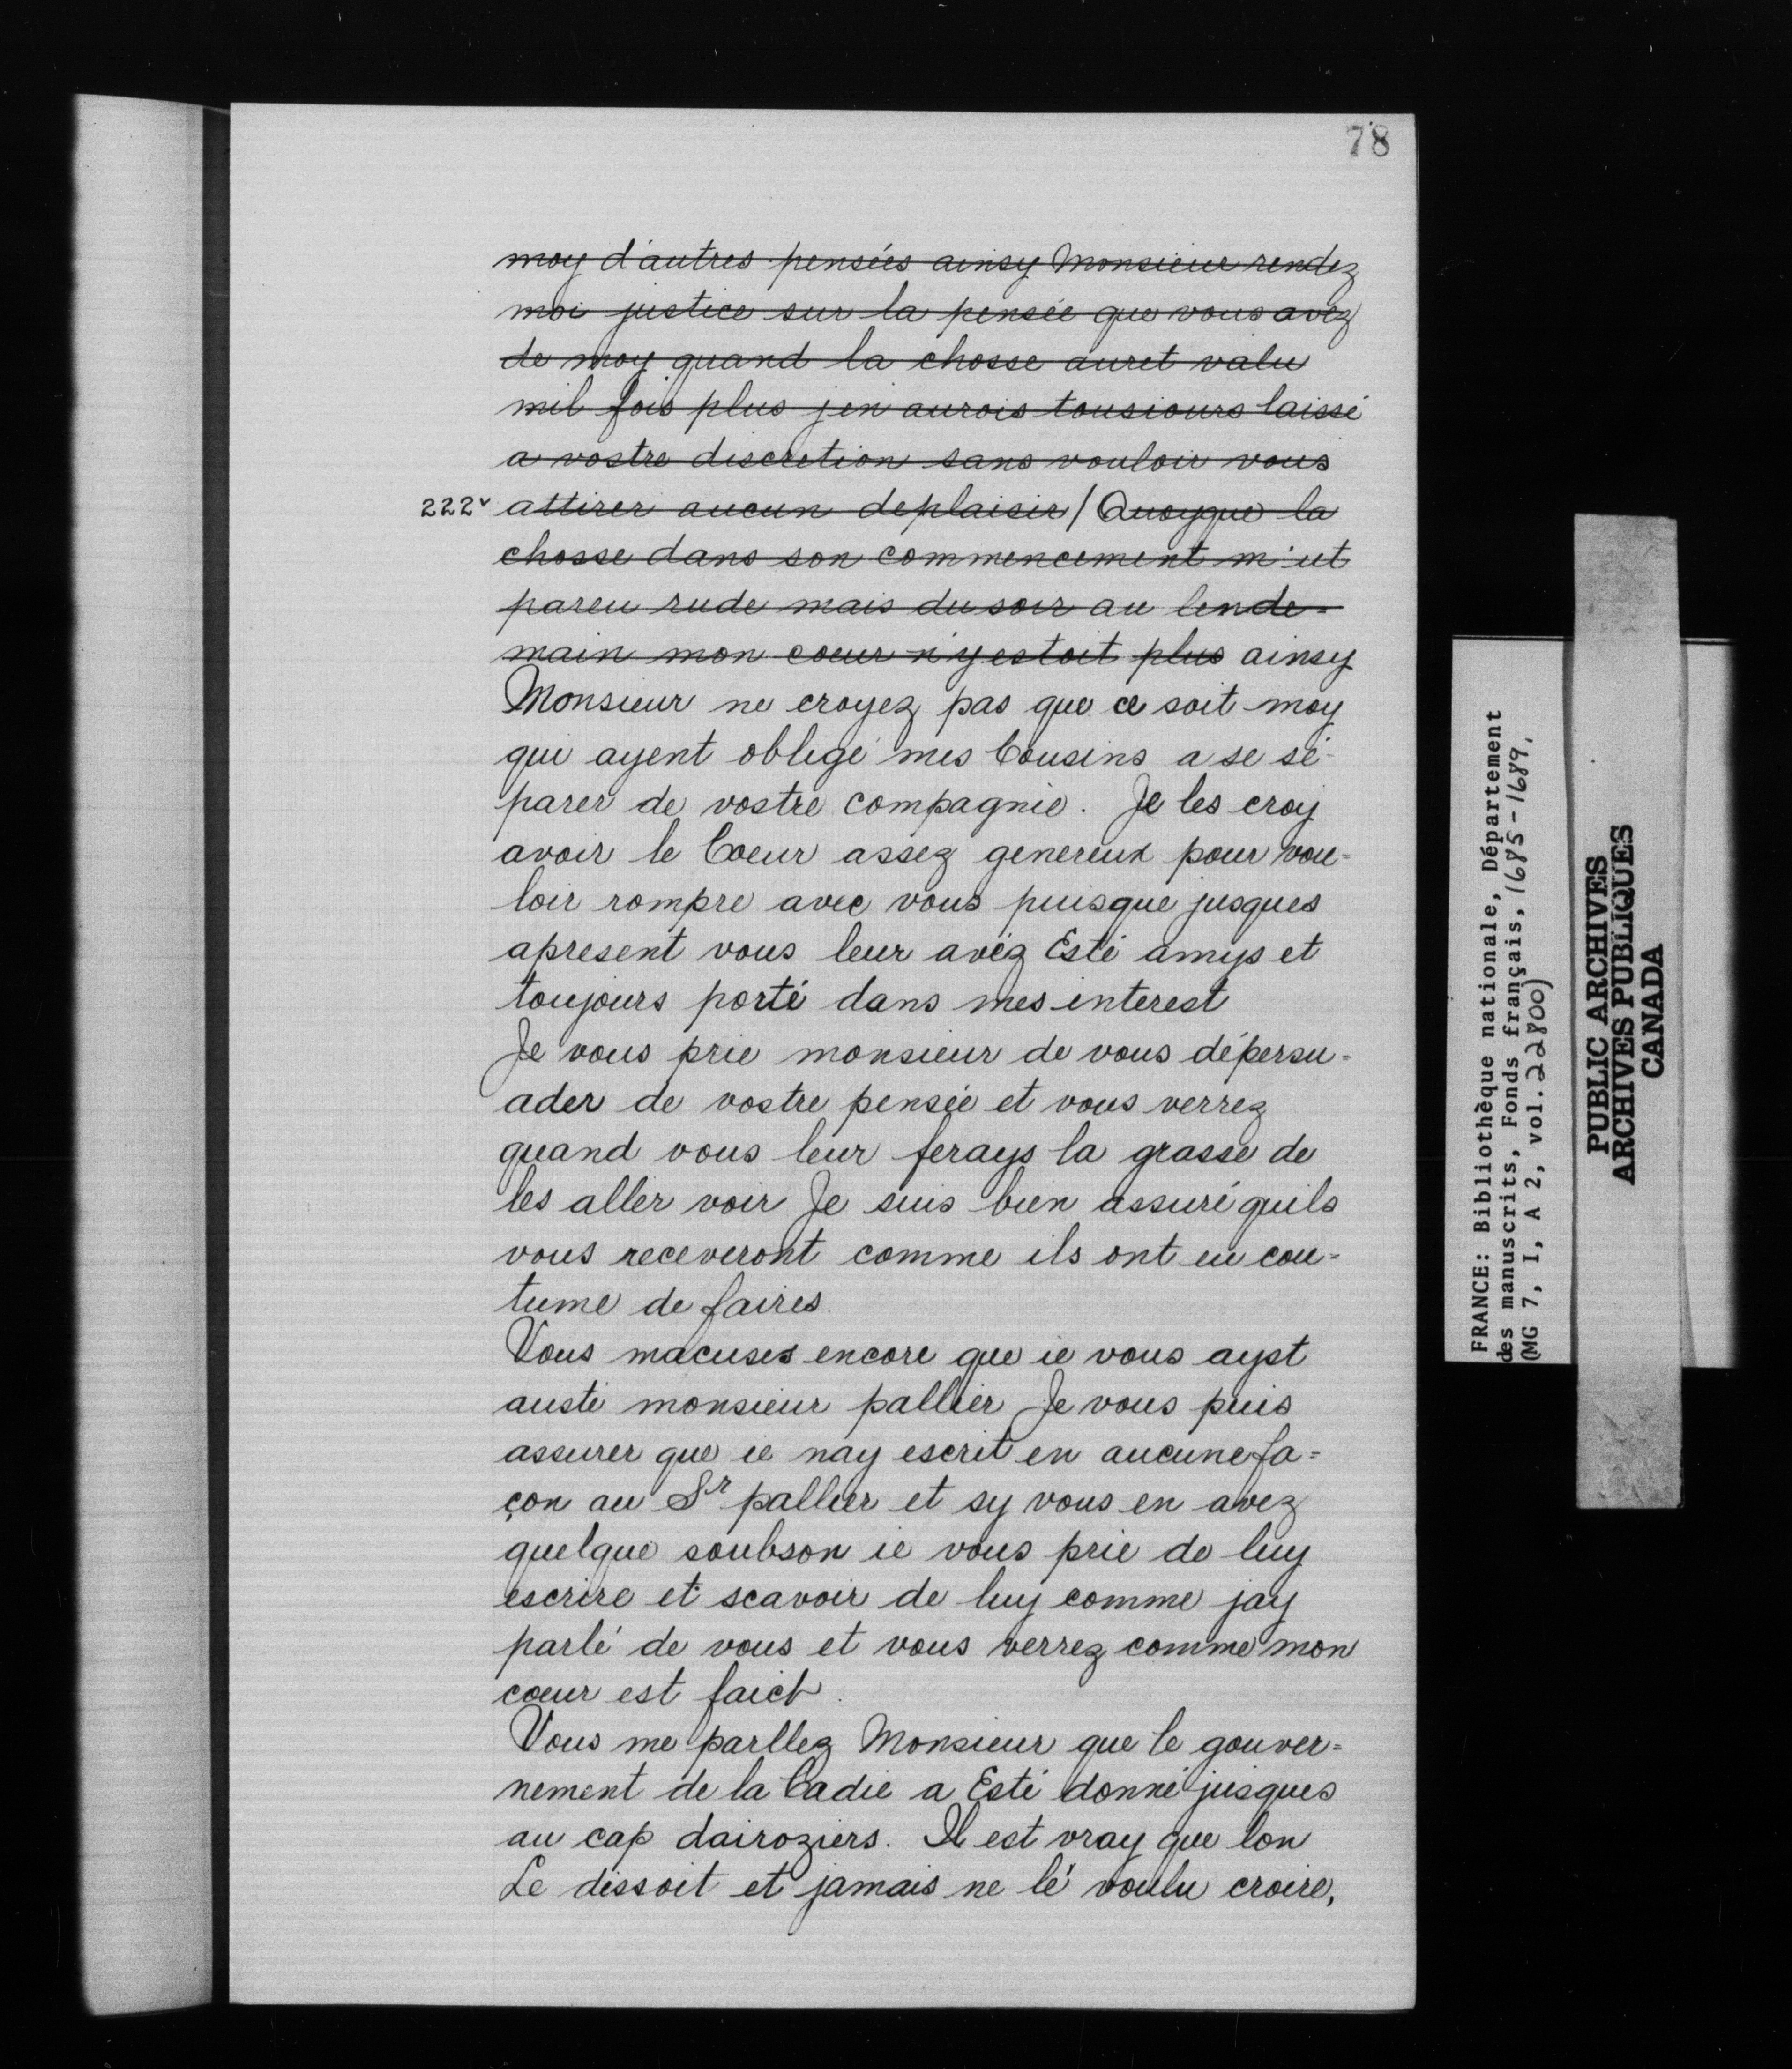 78
moy d'autres pensées ainsy Monsieur rendez
moi justice sur la pensée que vous avez
de moy quand la chosse auret valu
mil fois plus jen aurois tousiours laissé
a vostre discretion sans vouloir vous
222v attirer aucun deplaisir / Quoyque la
chosse dans son commencement m'ut
pareu rude mais du soir au lende=
main mon coeur n'y estoit plus ainsy
Monsieur ne croyez pas que ce soit moy
qui ayent obligé mes Cousins a se sé-
parer de vostre compagnie. Je les croy
avoir le Coeur assez genereux pour vou=
loir rompre avec vous puisque jusques
apresent vous leur avéz Esté amys et
toujours porté dans mes interest
Je vous prie monsieur de vous dépersu=
ader de vostre pensée et vous verrez
quand vous leur ferays la grasse de
les aller voir Je suis bien assuré quils
vous receveront comme ils ont eu cou=
tume de faires.
Vous macuses encore que ie vous ayst
austé monsieur pallier Je vous puis
assurer que ie nay escrit en aucune fa=
çon au Sr pallier et sy vous en avez
quelque soubson ie vous prie de luy
escrire et scavoir de luy comme jay
parlé de vous et vous verrez comme mon
coeur est faict.
Vous me parllez Monsieur que le gouver=
nement de la Cadie a Esté donné jusques
au cap dairoziers. Il est vray que lon
Le dissoit et jamais ne lé voulu croire,
FRANCE: Bibliothèque nationale, Département
des manuscrits, Fonds français, 1685-1689.
(MG 7, I, A 2, vol. 22800)
PUBLIC ARCHIVES
ARCHIVES PUBLIQUES
CANADA